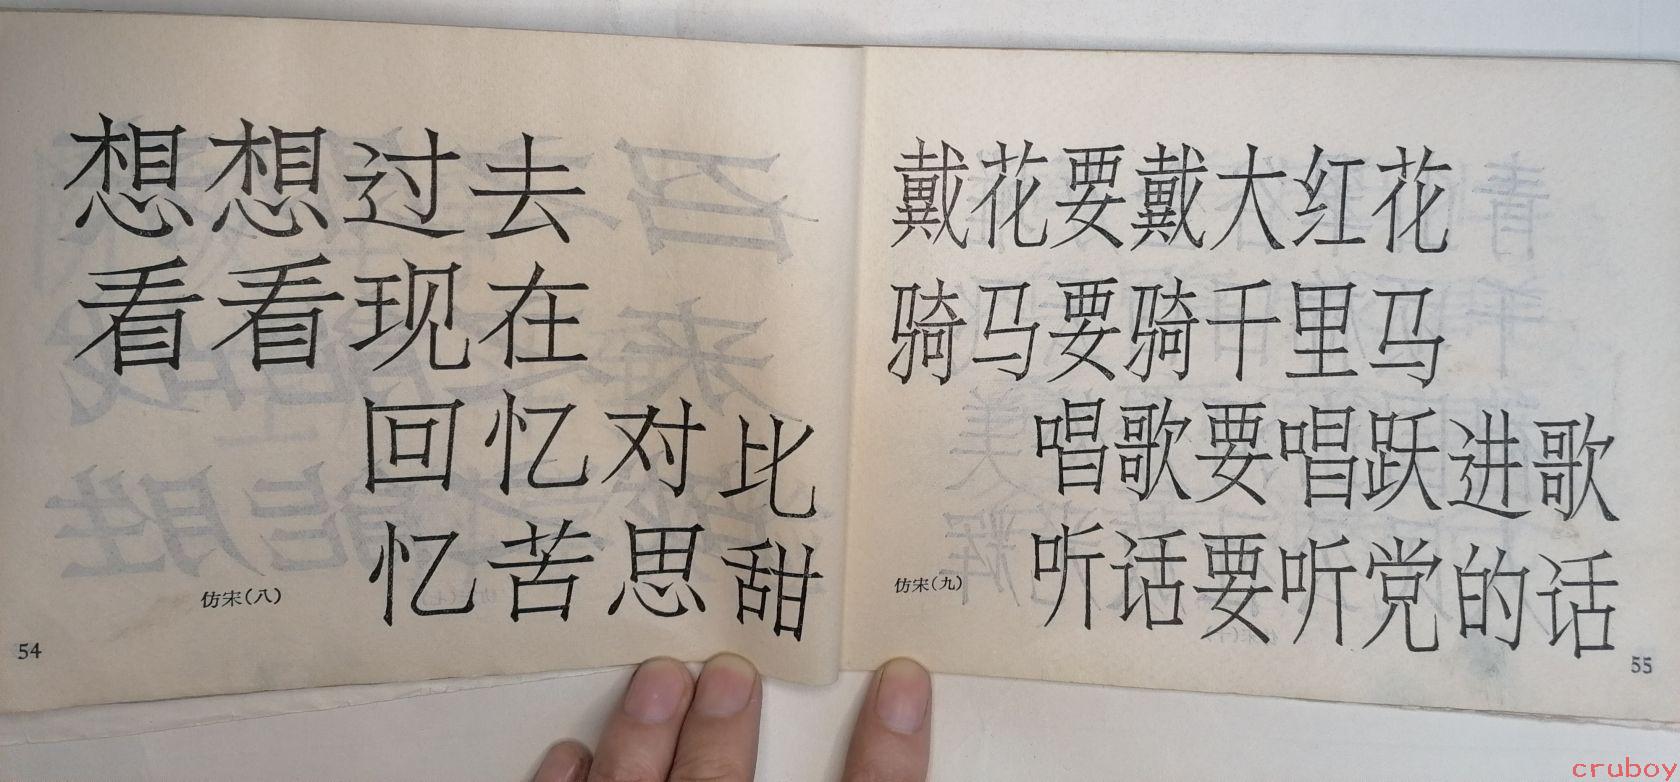 想想过去
看看现在
回忆对比
忆苦思甜
仿宋(八)
54
戴花要戴大红花
骑马要骑千里马
唱歌要唱跃进歌
听话要听党的话
仿宋(九)
55
cruboy